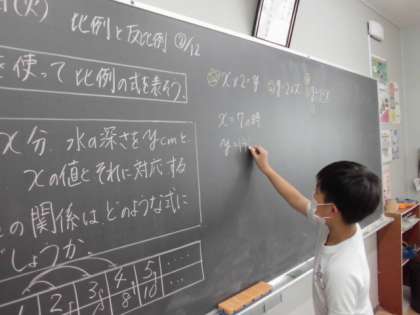 (火)
比例と反比例 ②/12
を使って比例の式を表そう。
x分、水の深さをycmと
xの値とそれに対応する
の関係はどのような式に
しょうか。
2 3 4 5 ....
8 10 ....
x=7の時